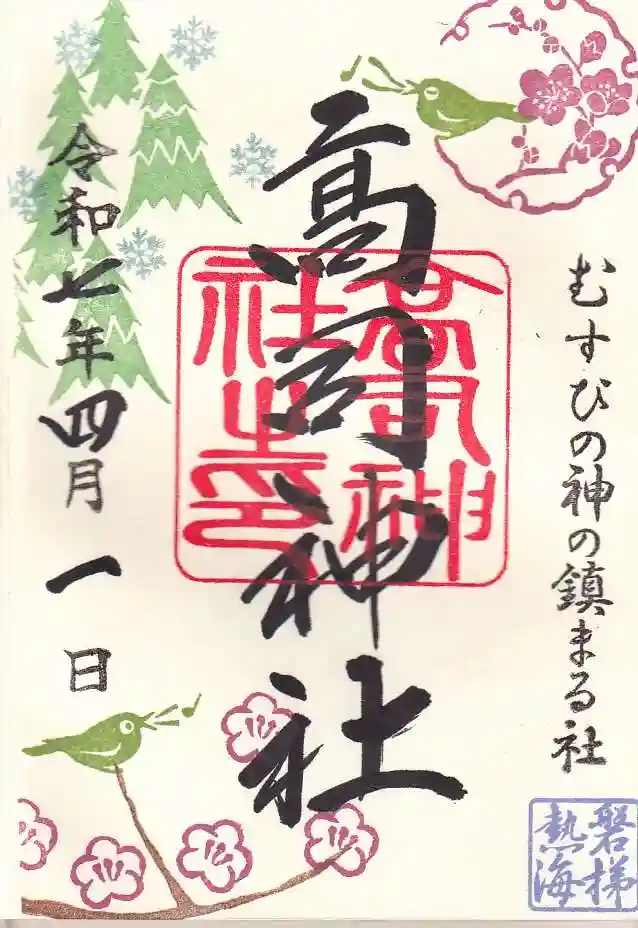 むすひの神の鎮まる社
磐梯
熱海
高司神社
高司神
社之印
令和七年四月一日